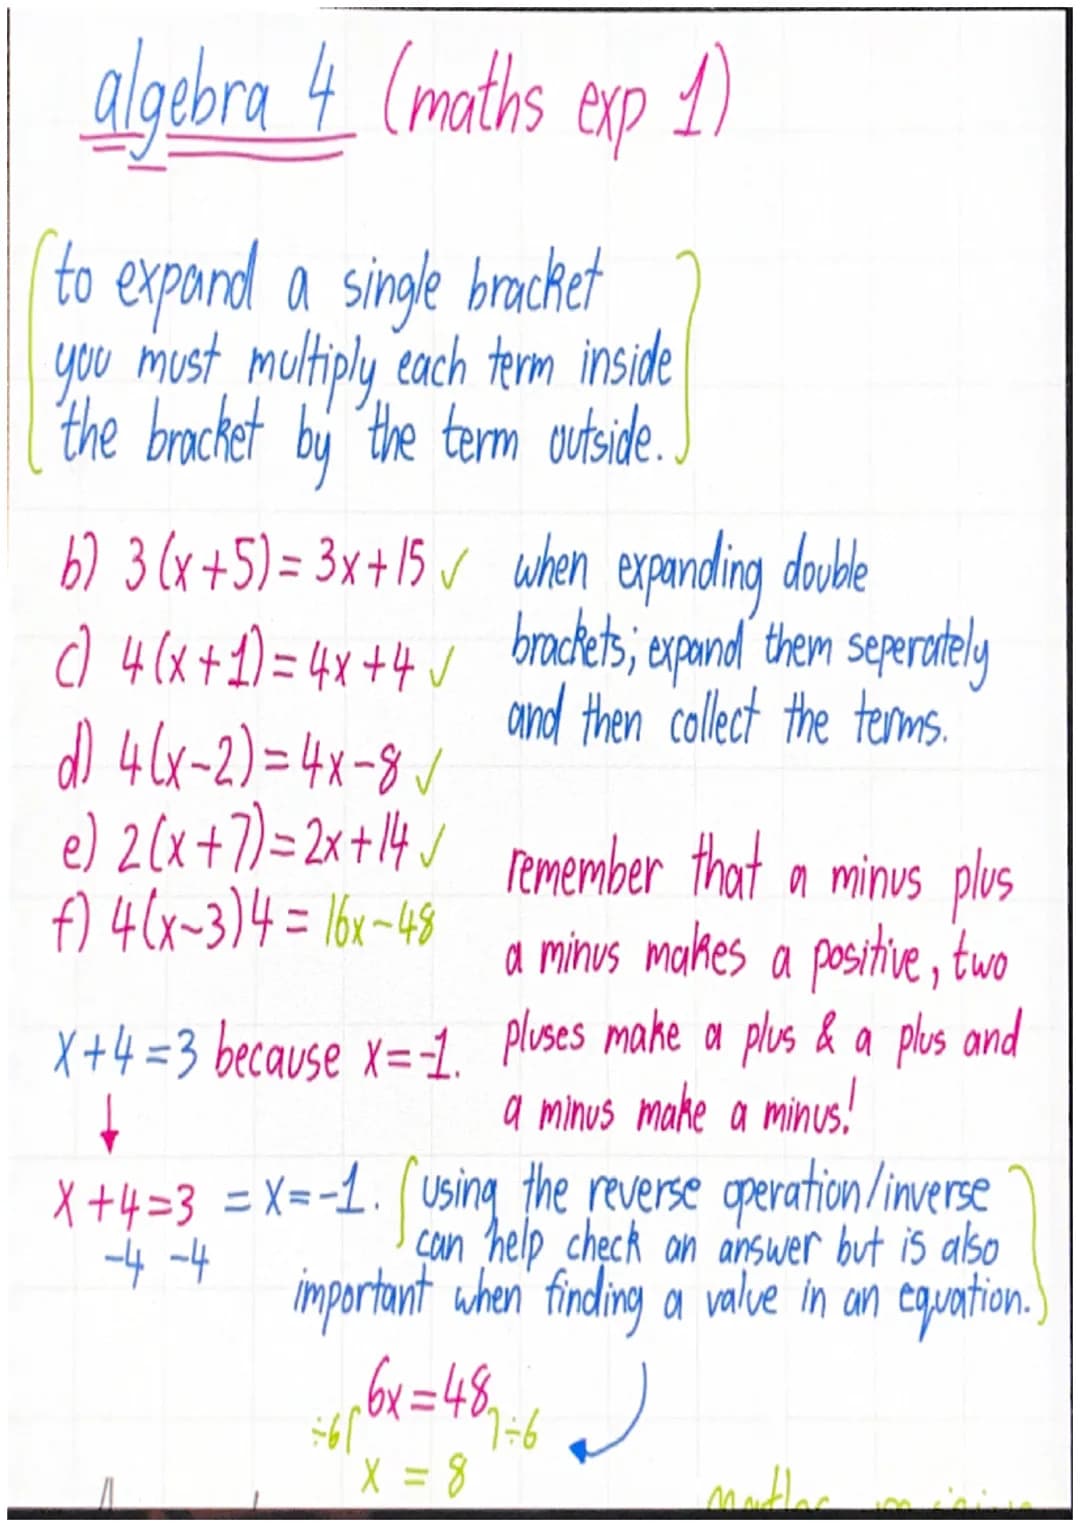 algebra 4 (maths exp 1)
to expand a single bracket
you must multiply each term inside
the bracket by the term outside.
b) 3(x+5)=3x+15 ✓
c) 4(x+1)=4x+4 ✓
d) 4(x-2)=4x-8 ✓
e) 2(x+7)=2x+14 ✓
f) 4(x-3)4=16x-48
when expanding double
brackets; expand them seperately
and then collect the terms.
remember that a minus plus
a minus makes a positive, two
pluses make a plus & a plus and
a minus make a minus!
x+4=3 because x=-1.
↓
x+4=3 = x=-1.
-4 -4
(using the reverse operation/inverse
can help check an answer but is also
important when finding a value in an equation.)
6x=48
÷6 ÷6
x = 8